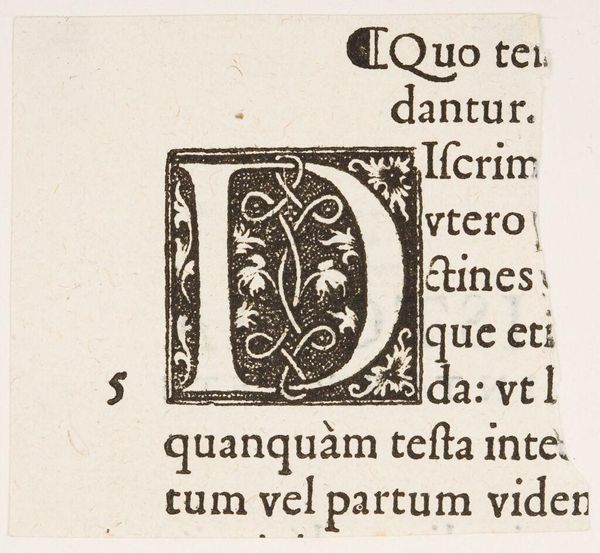 ⁋Quo ten
dantur.
DIſcrim
vtero
ctines
que eti
5 da: vt l
quanquàm teſta inte
tum vel partum viden